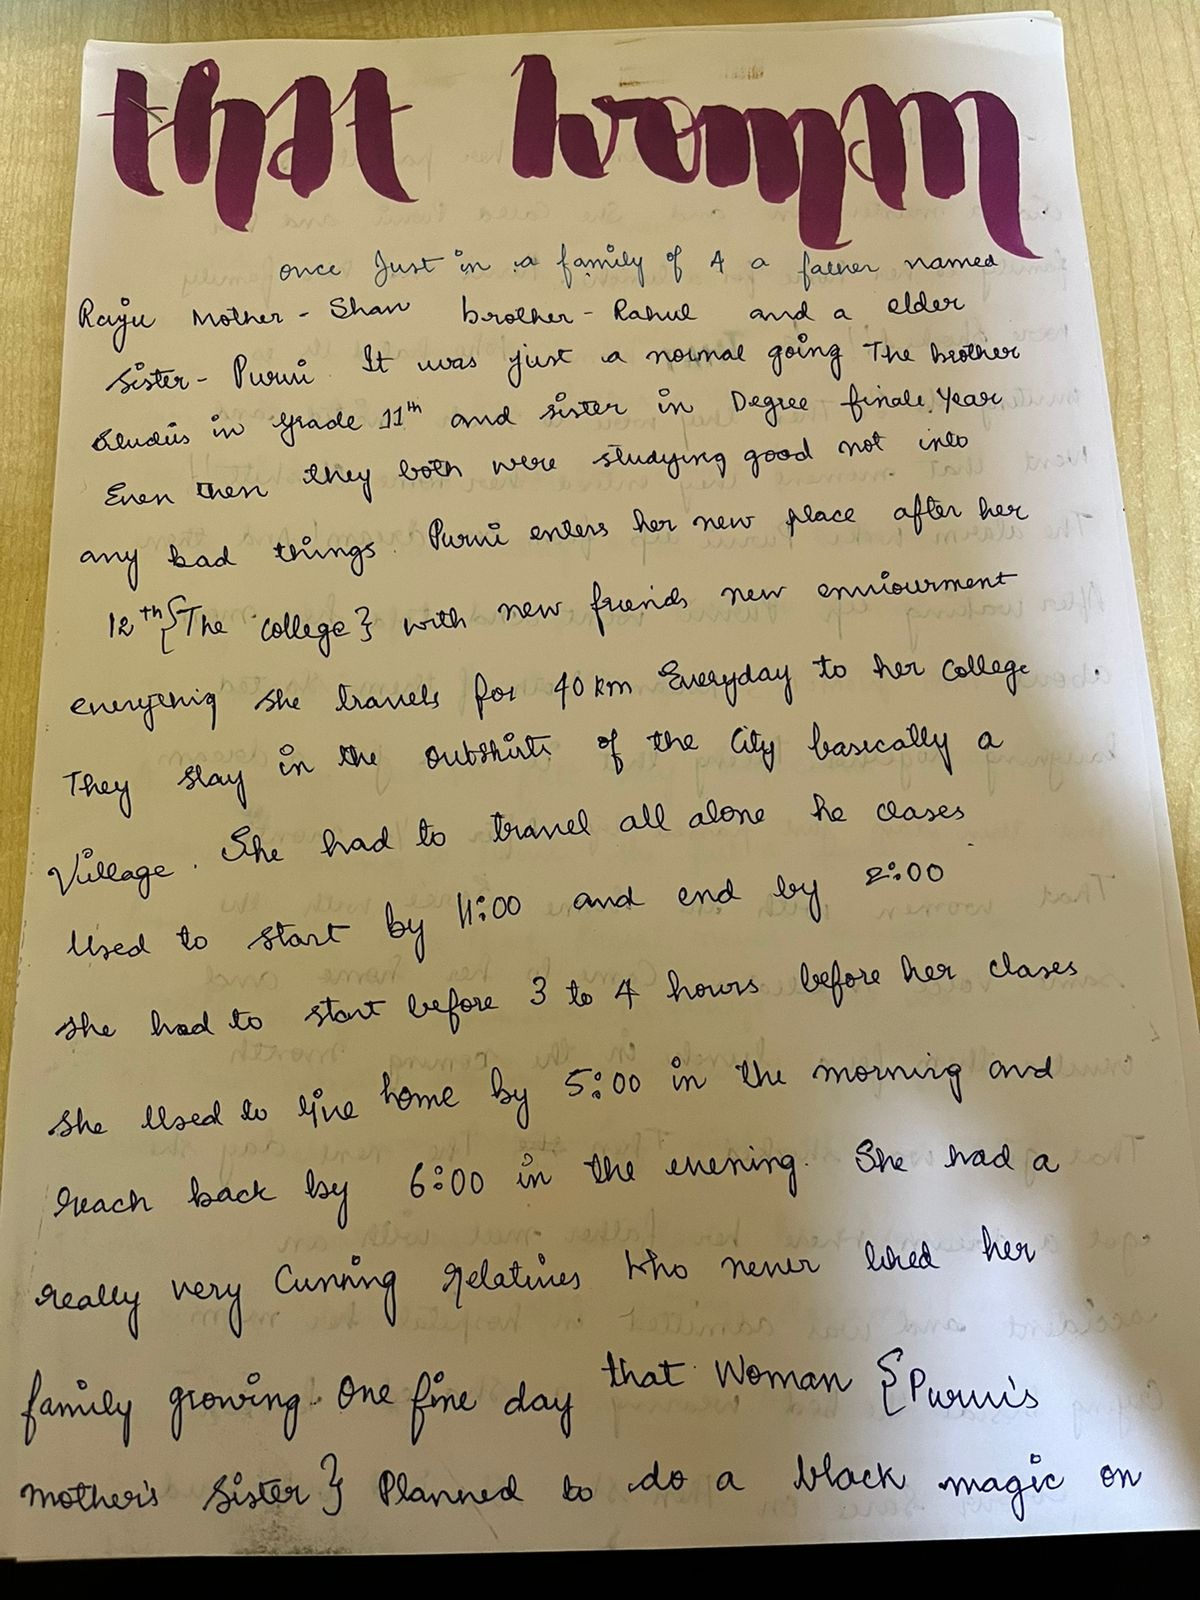 that woman
once Just in a family of 4 a father named
Raju Mother - Shan brother - Rahul and a elder
sister - Purvi It was just a normal going The brother
studies in grade 11th and sister in Degree finale Year
Even then they both were studying good not into
any bad things. Purvi enters her new place after her
12th {The college} with new friends new enviourment
everything she travels for 40 km Everyday to her college
They stay in the outskirts of the City basically a
Village. She had to travel all alone he clases
Used to start by 11:00 and end by 2:00
she had to start before 3 to 4 hours before her clases
she Used to live home by 5:00 in the morning and
reach back by 6:00 in the evening. She had a
really very Cunning relatives who never liked her
family growing. One fine day that Woman {Purvi's
mother's sister} Planned to do a black magic on